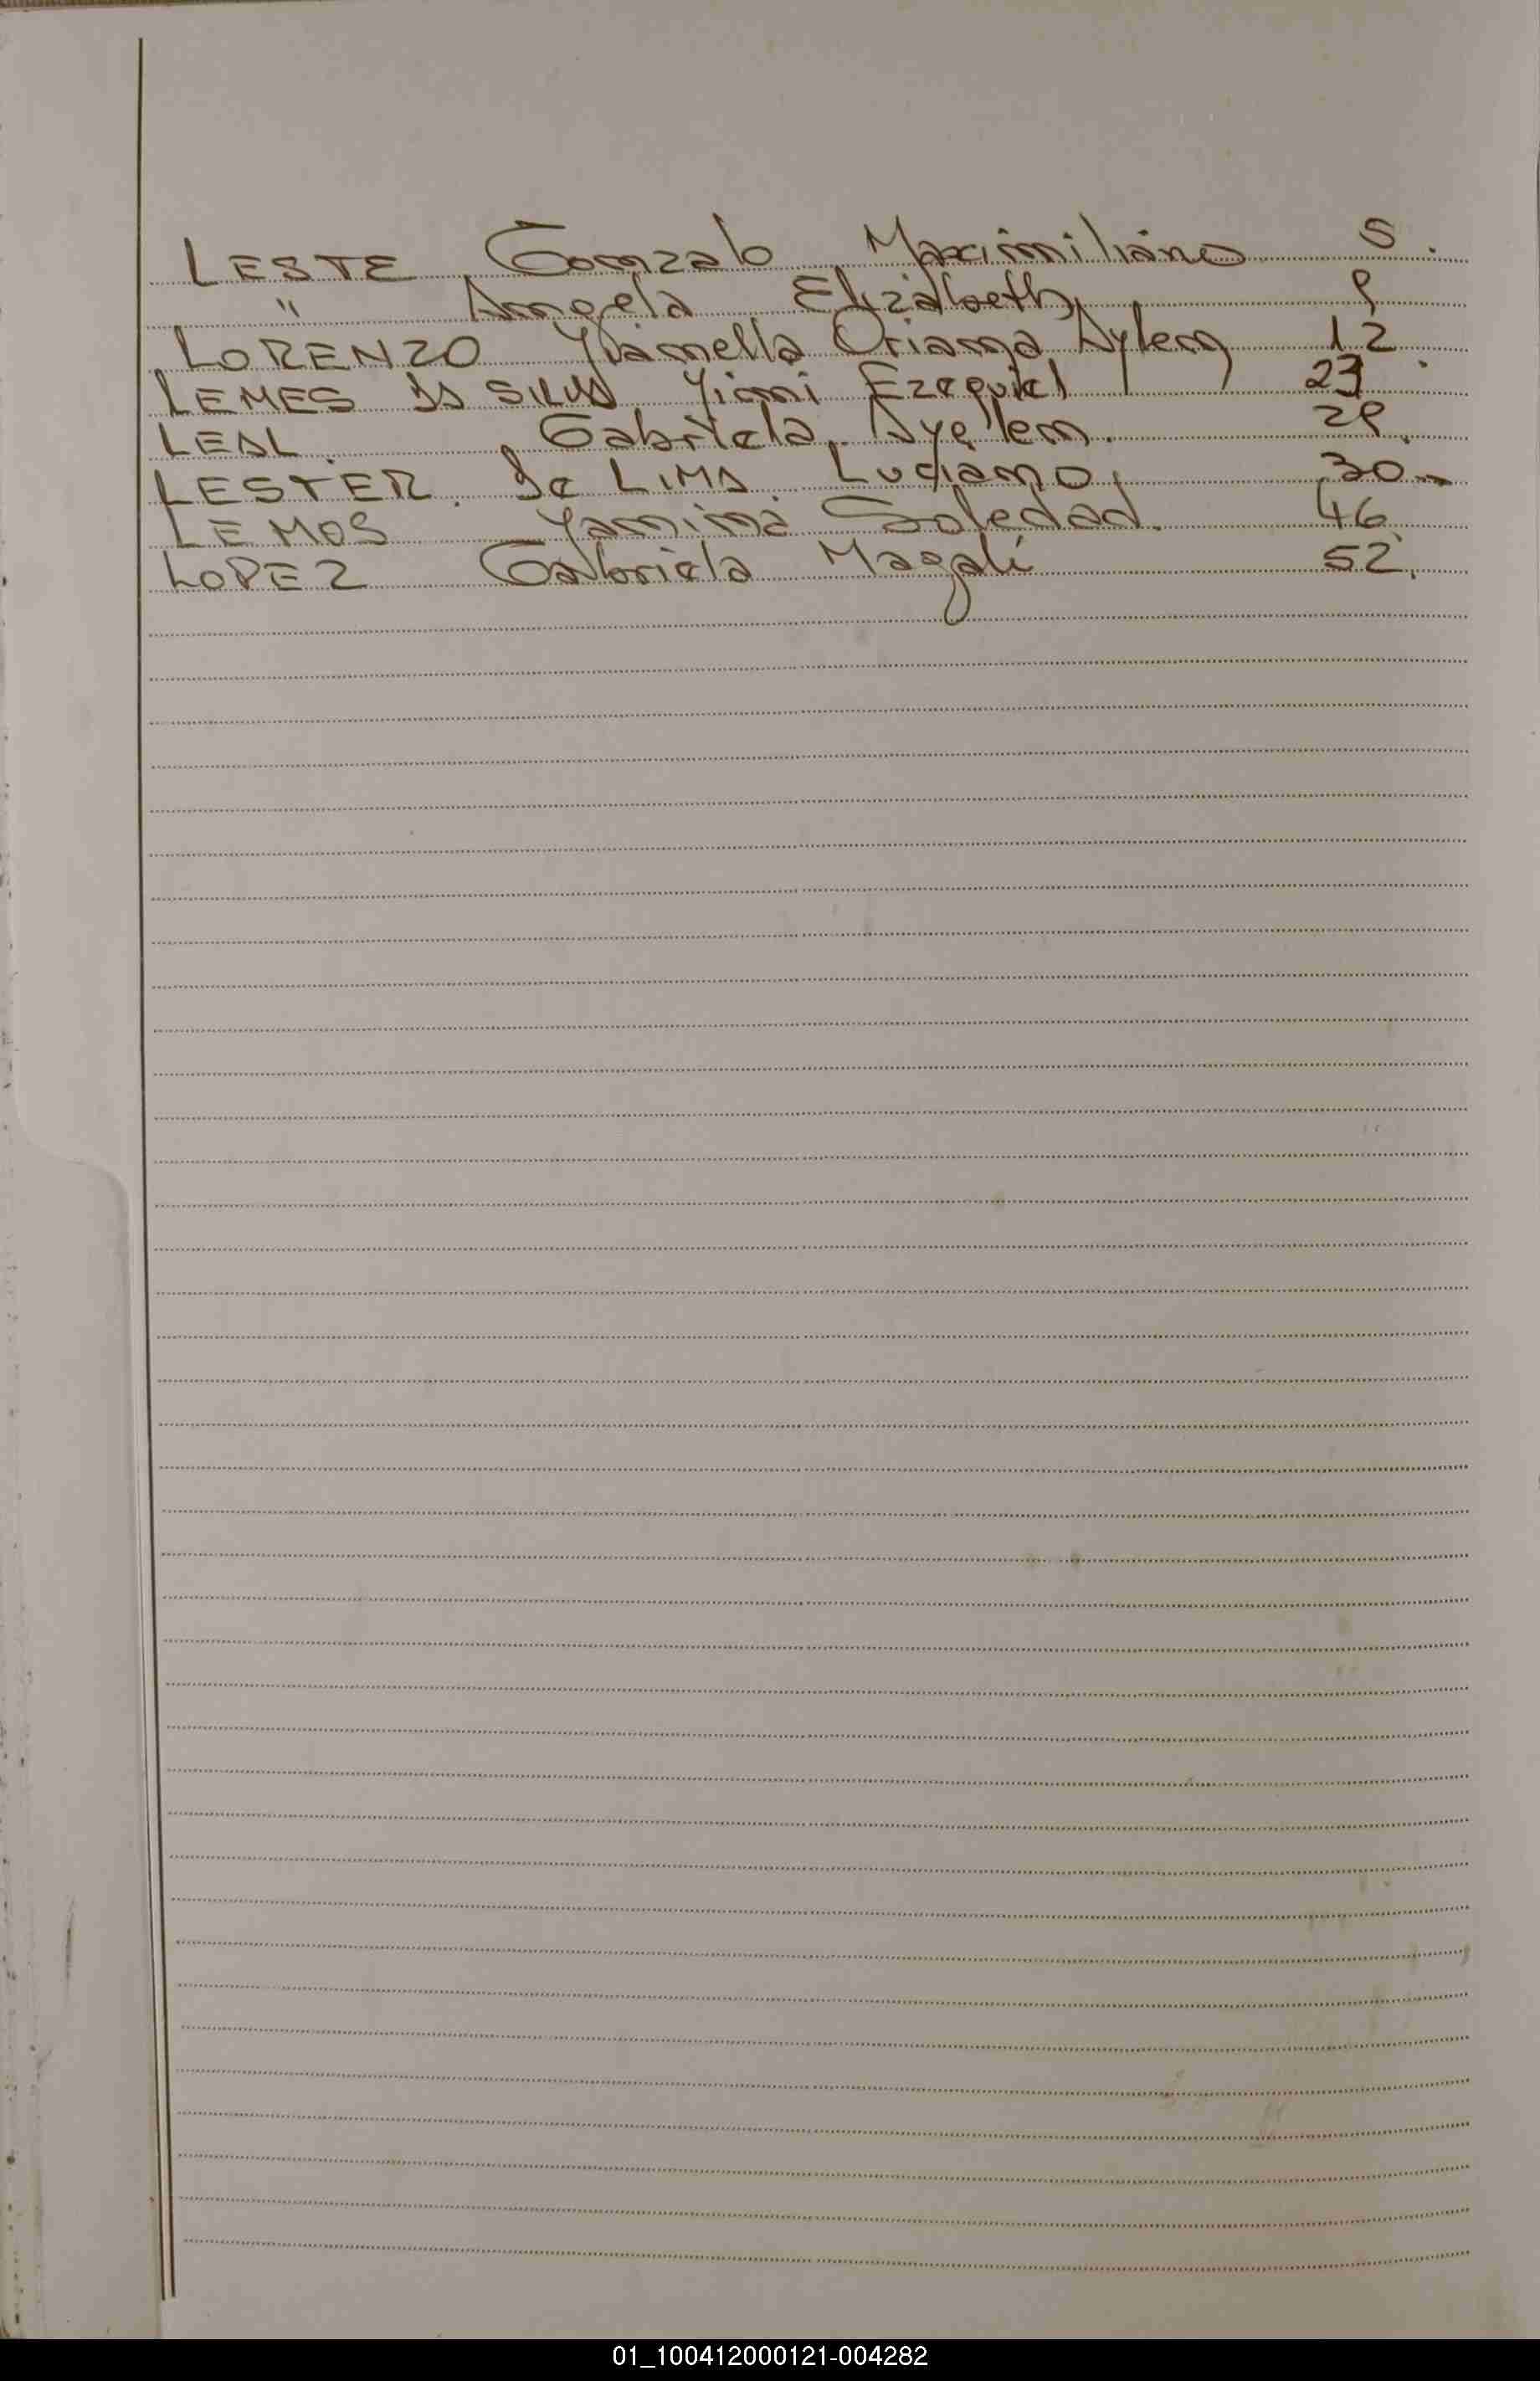 LESTE Gonzalo Maximiliano 5.
" Angela Elizabeth, 9
LORENZO Yiamella Oriana Aylen 12.
LEMES DA SILVA Yioni Ezequiel 23
LEAL. Gabriela Aye'len. 29.
LESTER. De LIMA. Luciano, 30
LEMOS Yamina Soledad. 46
LOPEZ Gabriela Magalí 52.
01_100412000121-004282